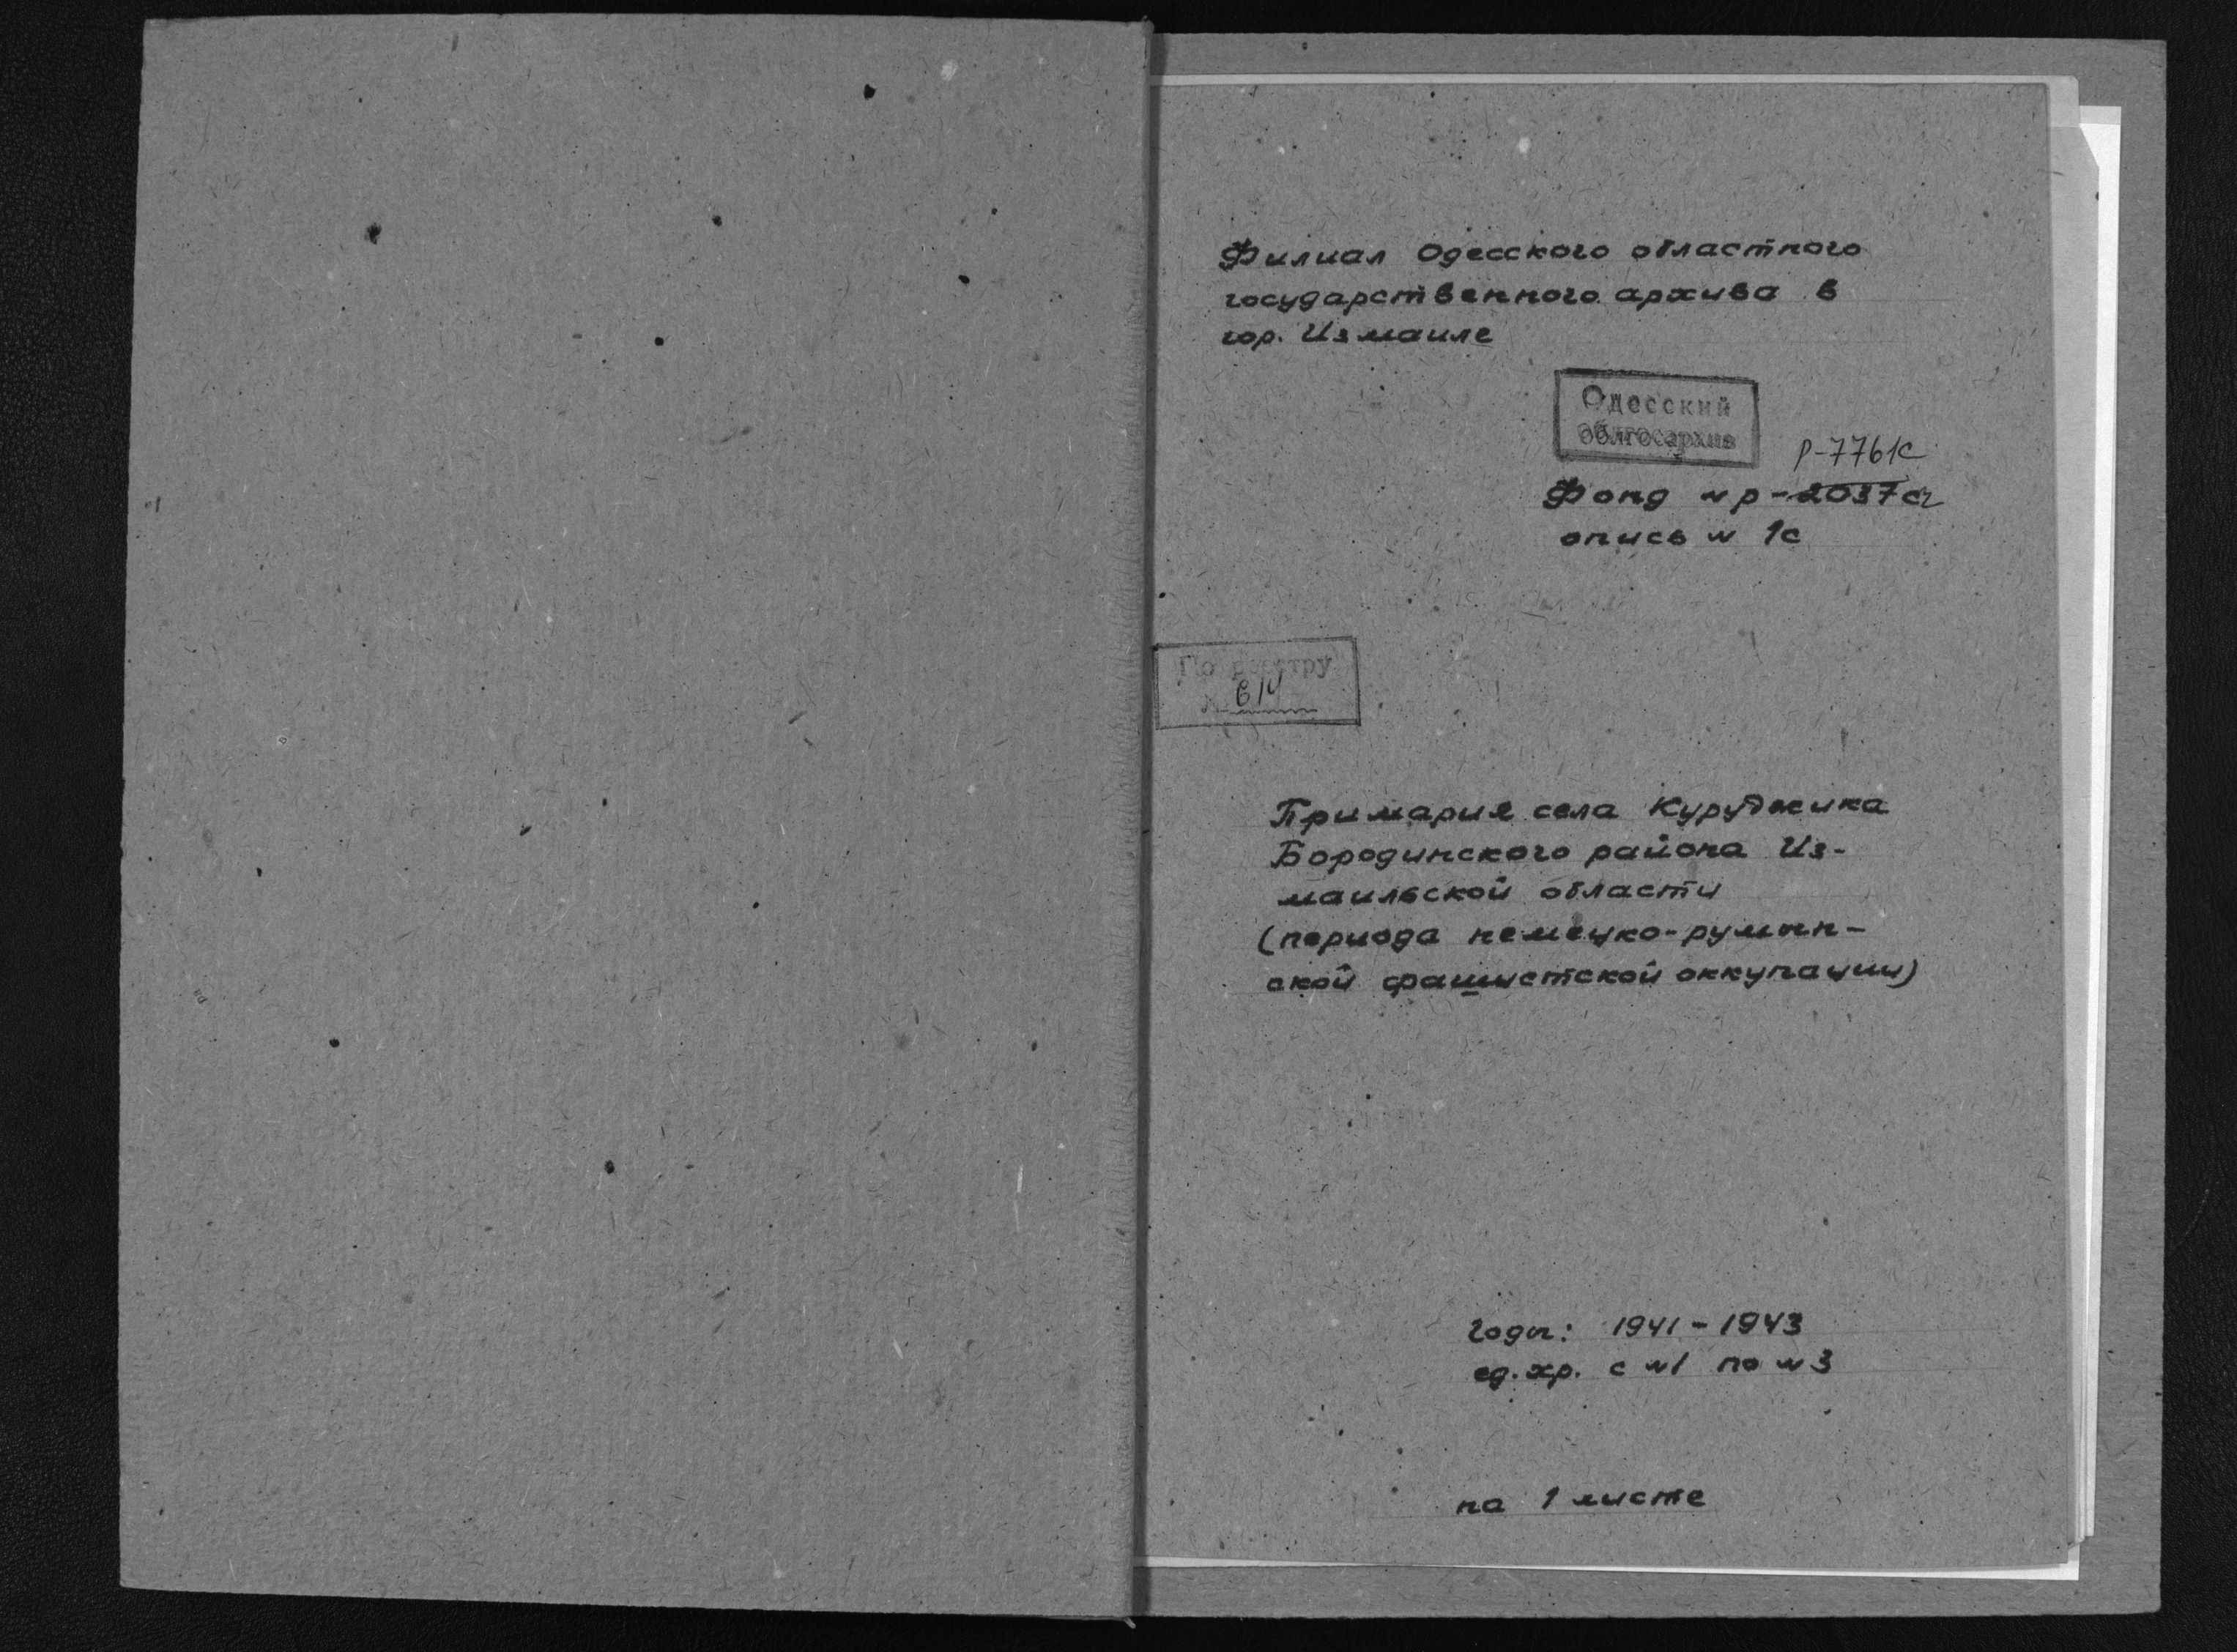 Филиал Одесского областного
государственного архива в
гор. Измаиле
Одесский
облгосархив
Р-7761с
Фонд № р-2037с
опись № 1с
По реестру
№ 614
Примария села Куруджика
Бородинского района Из-
маильской области
(периода немецко-румын-
ской фашистской оккупации)
Годы: 1941-1943
ед. хр. с №1 по №3
на 1 листе